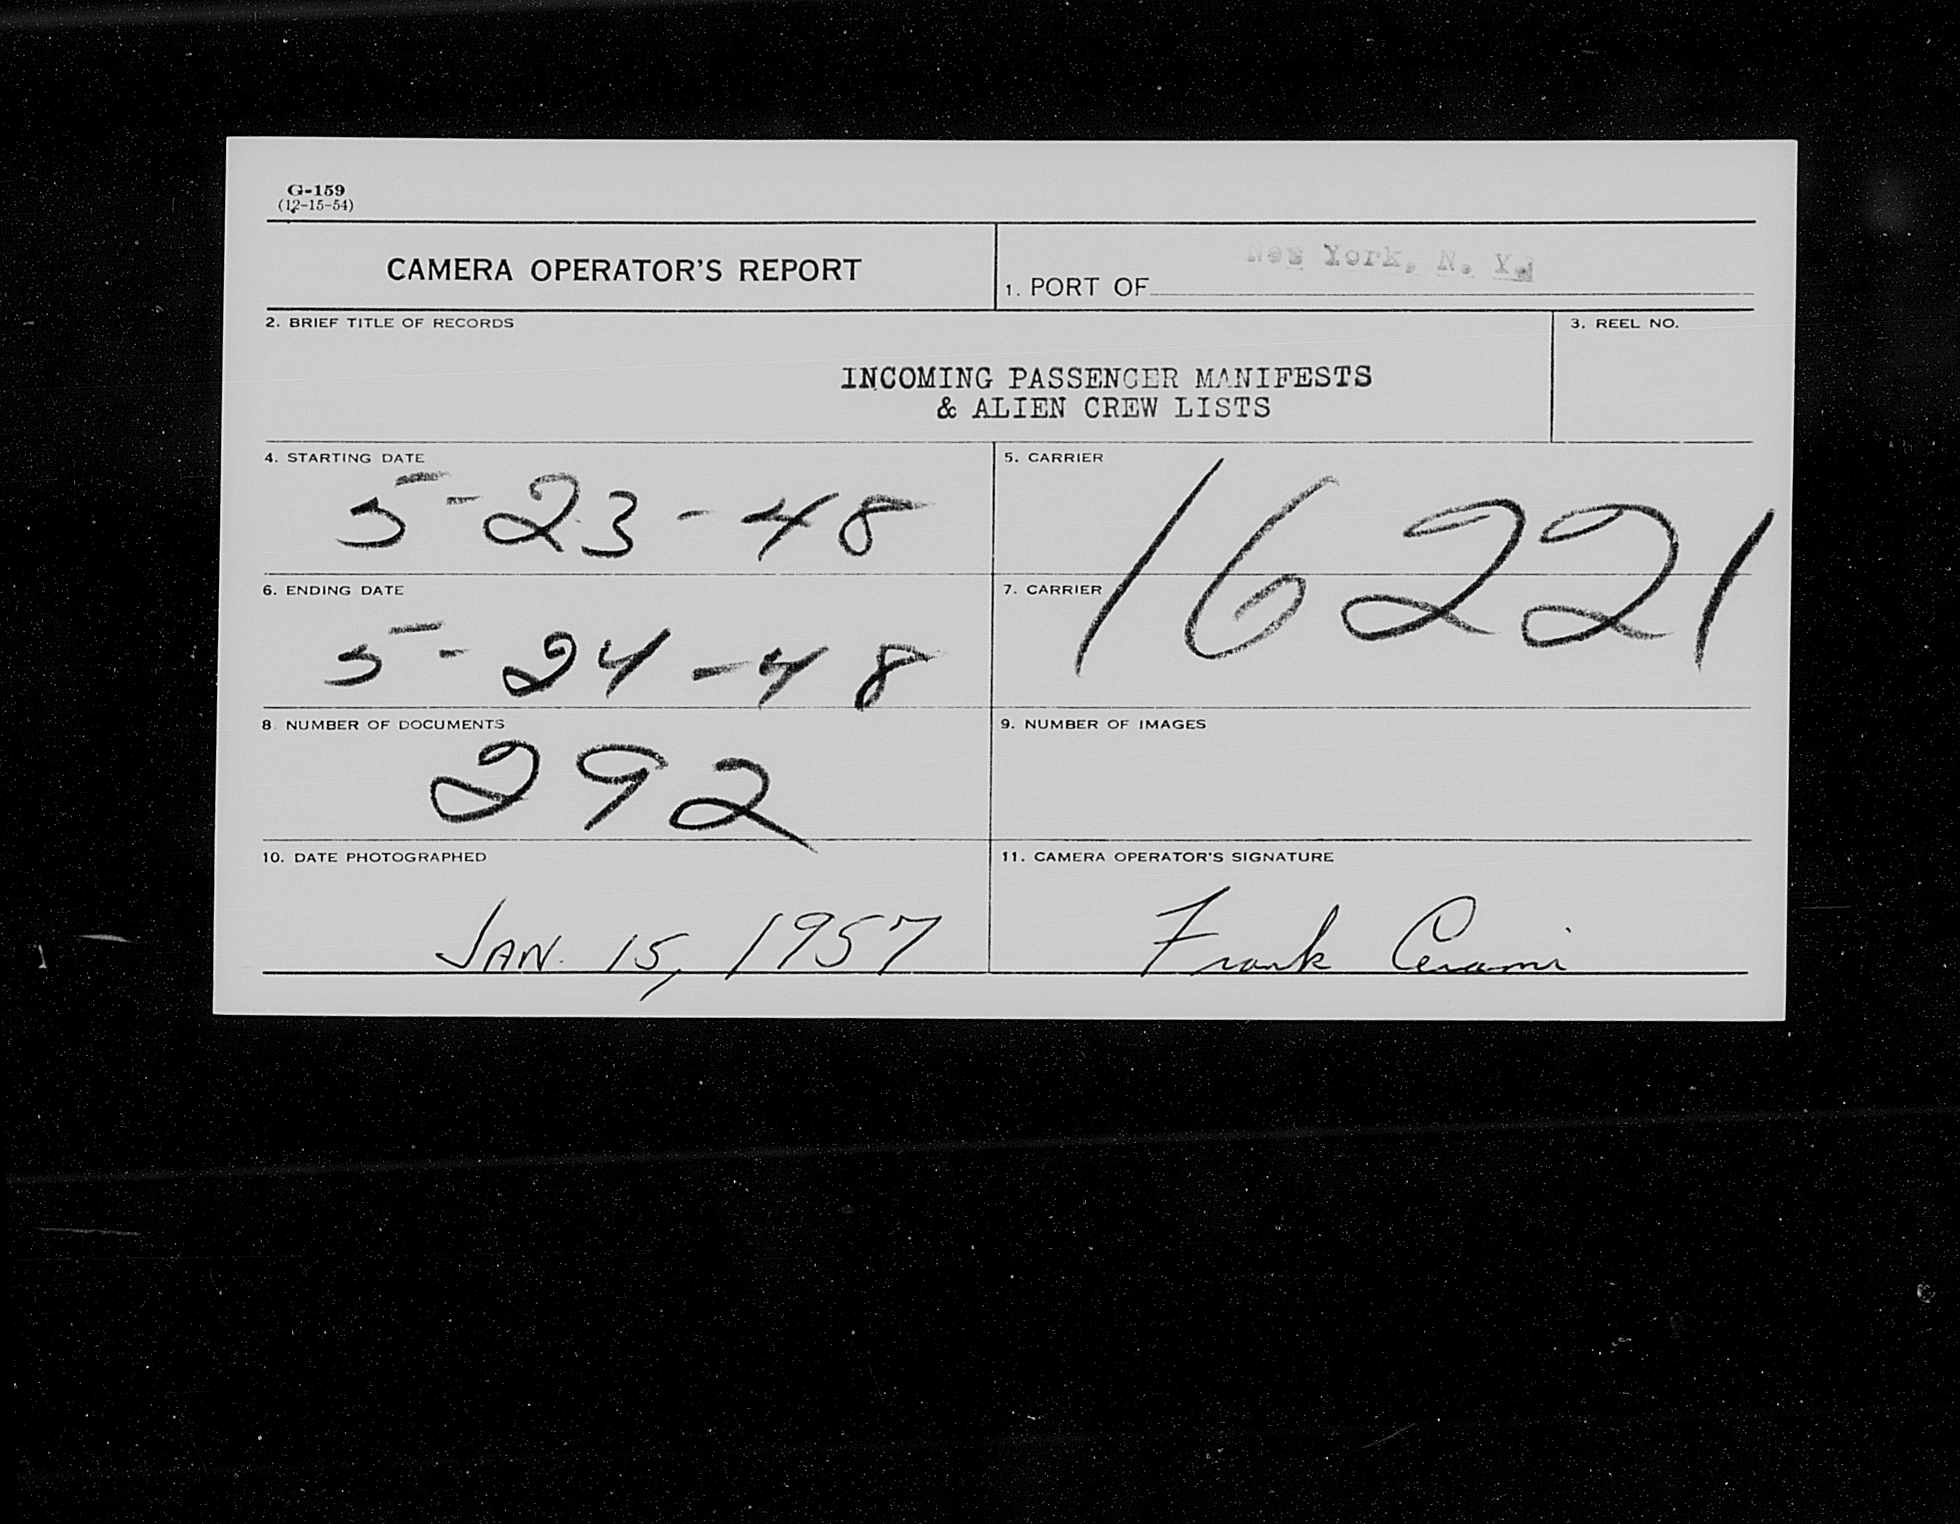 G-159
(12-15-54)
CAMERA OPERATOR'S REPORT
1. PORT OF New York, N. Y.
2. BRIEF TITLE OF RECORDS
3. REEL NO.
INCOMING PASSENGER MANIFESTS
& ALIEN CREW LISTS
4. STARTING DATE
5-23-48
5. CARRIER
16221
6. ENDING DATE
5-24-48
7. CARRIER
8. NUMBER OF DOCUMENTS
292
9. NUMBER OF IMAGES
10. DATE PHOTOGRAPHED
JAN. 15, 1957
11. CAMERA OPERATOR'S SIGNATURE
Frank Cerami